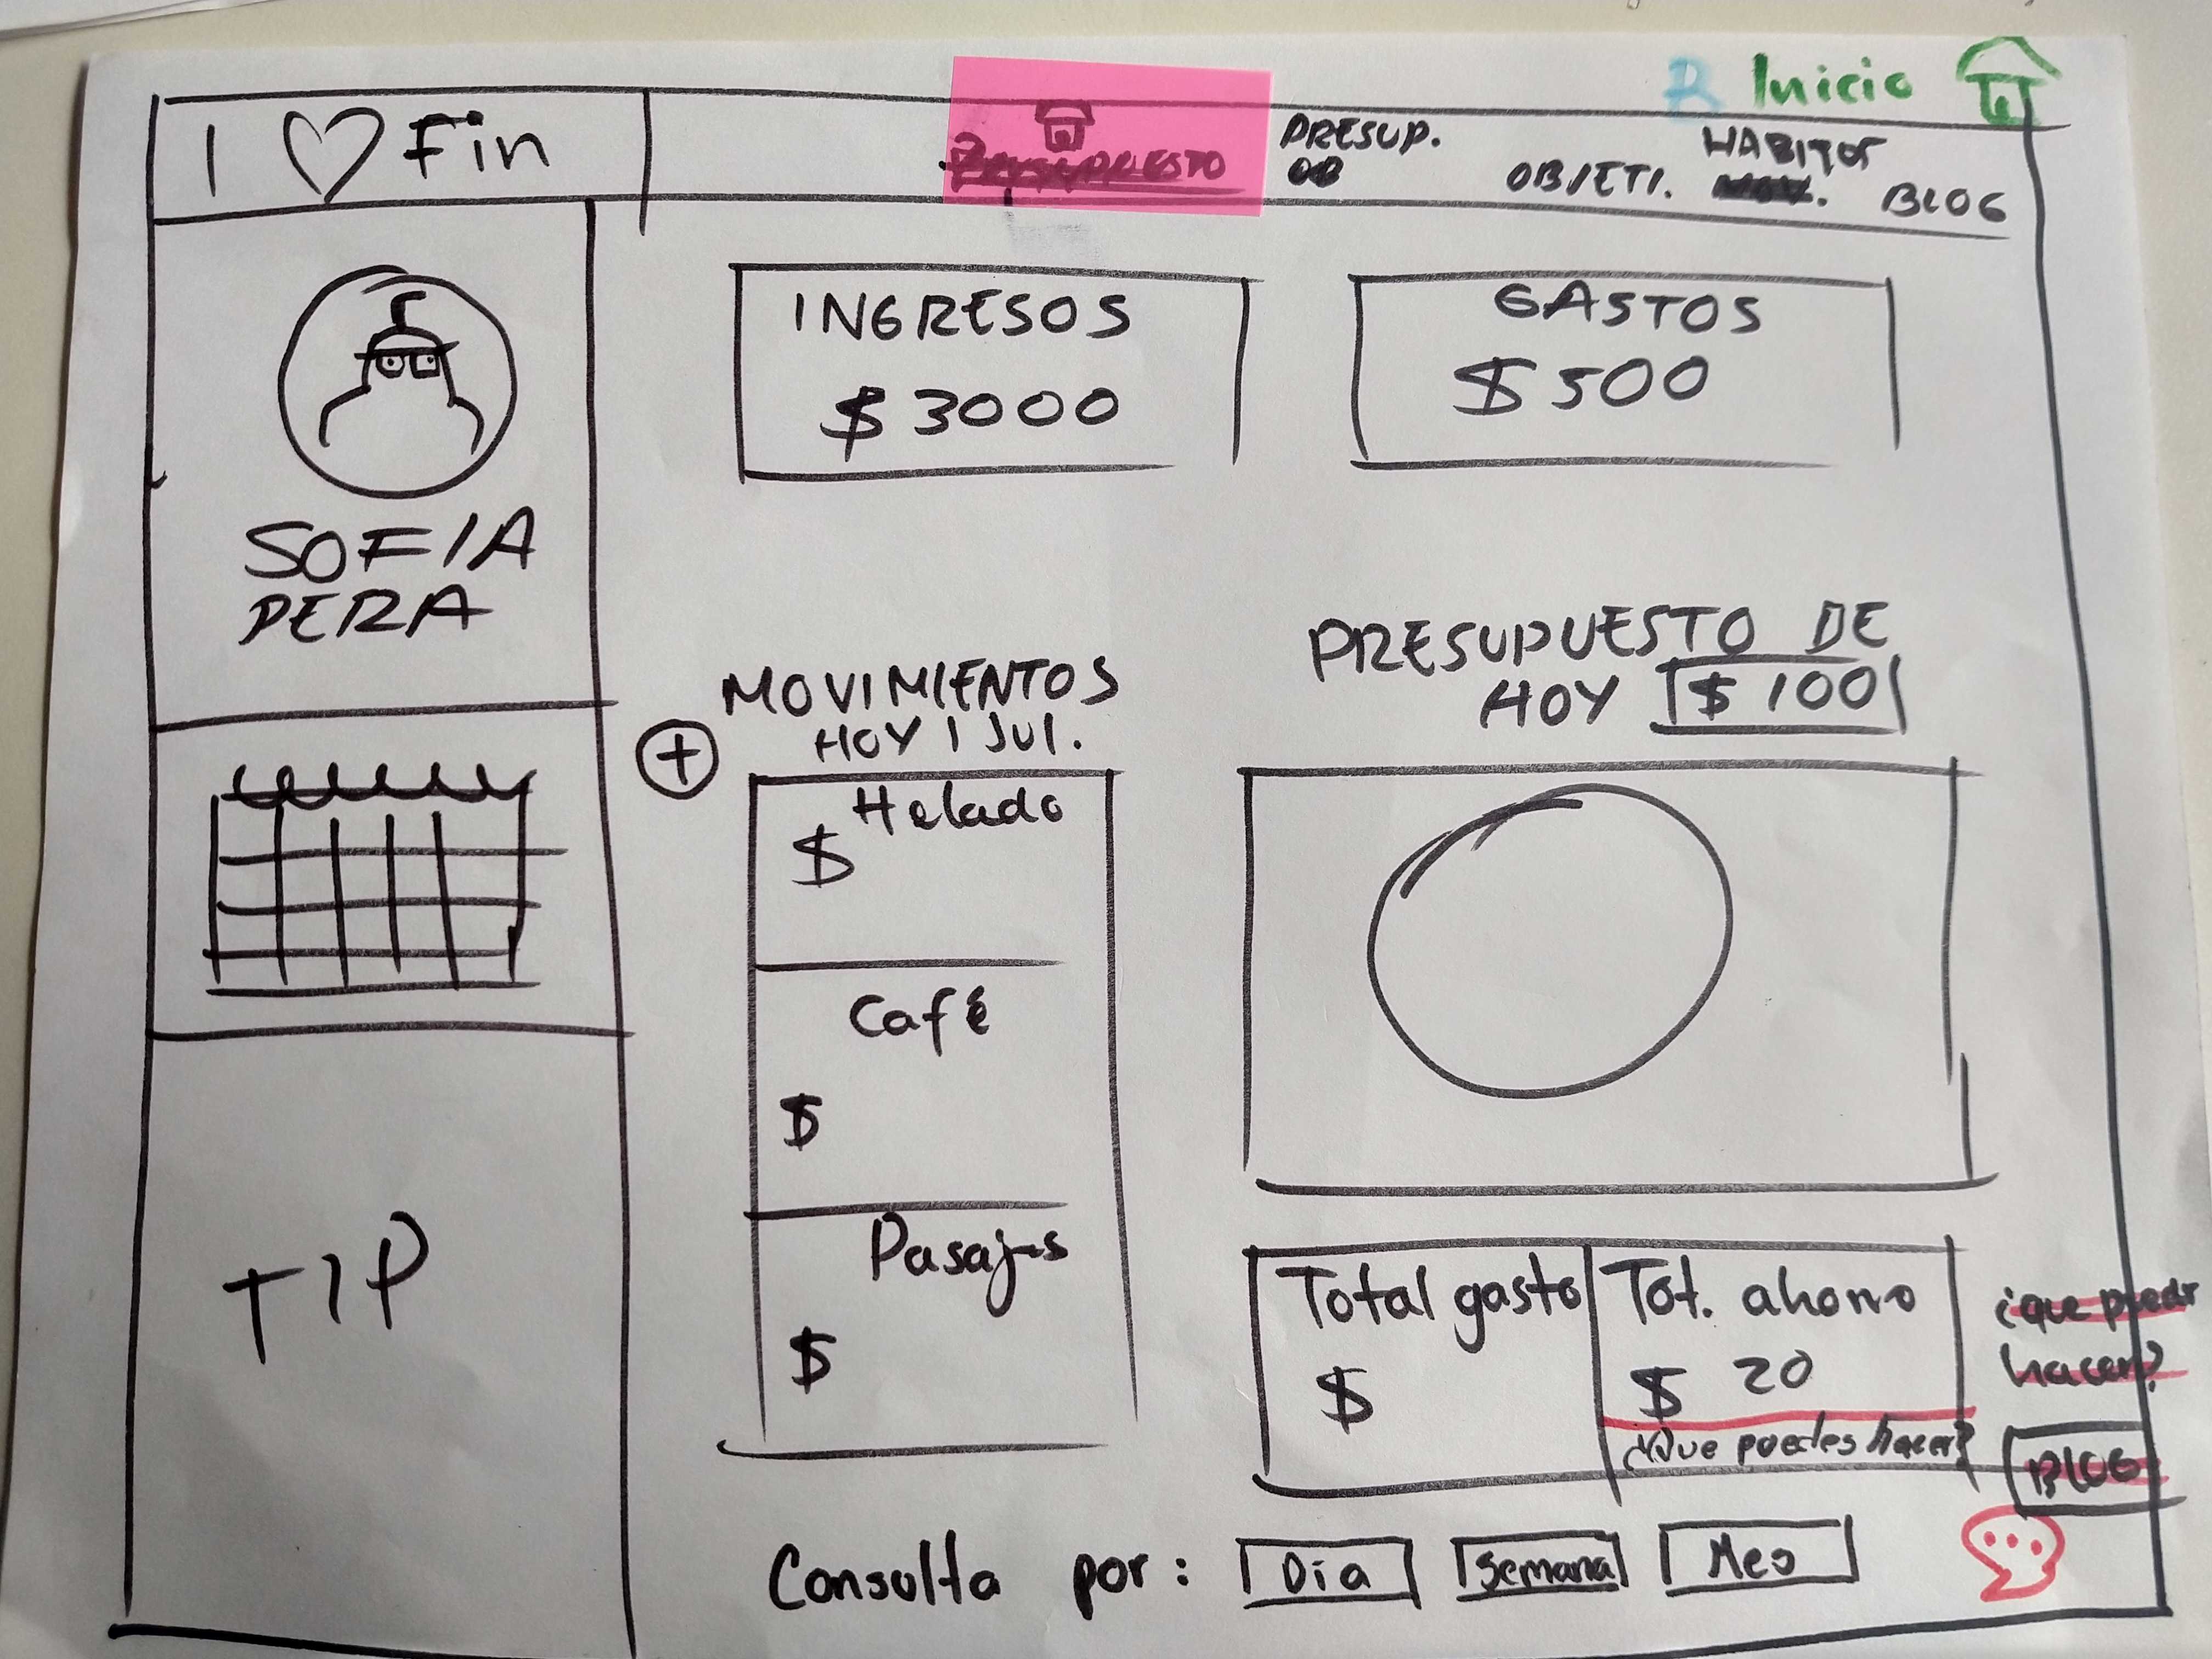 Inicio
I ♡ Fin
PRESUPUESTO
PRESUP.
OBJETI.
HABITOS
BLOG
SOFIA
PERA
TIP
INGRESOS
$ 3000
GASTOS
$ 500
MOVIMIENTOS
HOY 1 JUL.
+
Helado
$
Café
$
Pasajes
$
PRESUPUESTO DE
HOY $ 100
Total gasto
$
Tot. ahorro
$ 20
¿Que puedes hacer?
¿que puedr
hacer?
BLOG
Consulta por: Día Semana Mes